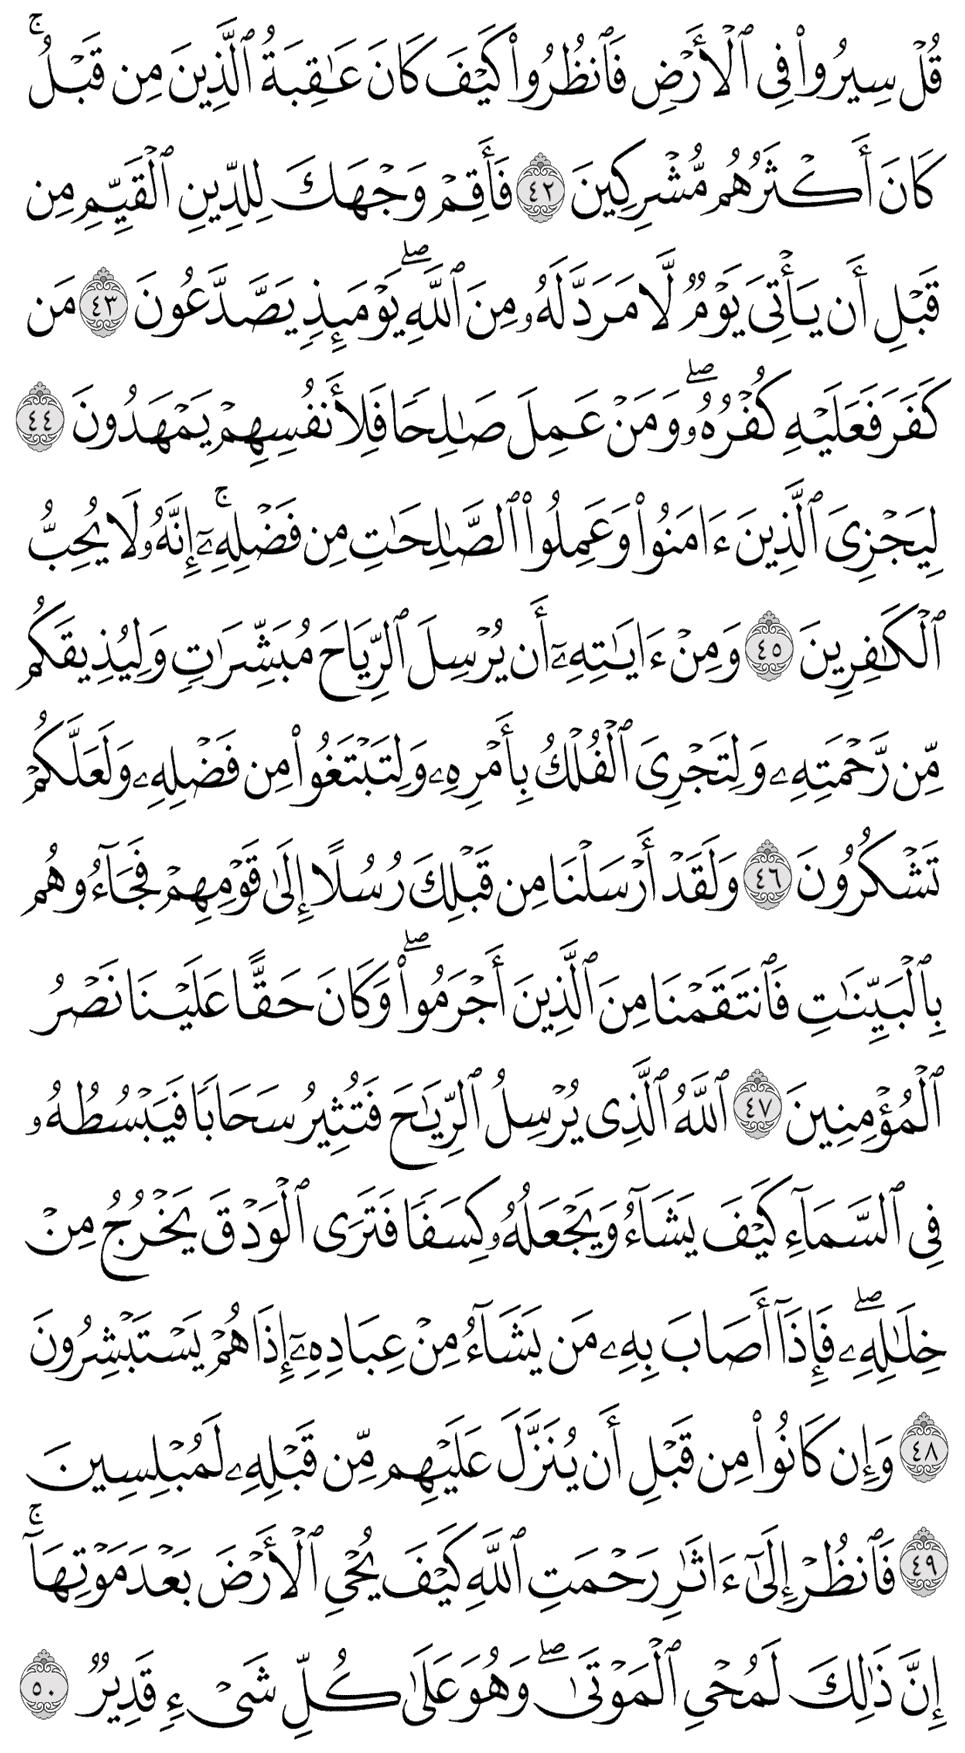 قُلۡ سِيرُواْ فِي ٱلۡأَرۡضِ فَٱنظُرُواْ كَيۡفَ كَانَ عَٰقِبَةُ ٱلَّذِينَ مِن قَبۡلُۚ
كَانَ أَكۡثَرُهُم مُّشۡرِكِينَ ٤٢ فَأَقِمۡ وَجۡهَكَ لِلدِّينِ ٱلۡقَيِّمِ مِن
قَبۡلِ أَن يَأۡتِيَ يَوۡمٞ لَّا مَرَدَّ لَهُۥ مِنَ ٱللَّهِۖ يَوۡمَئِذٖ يَصَّدَّعُونَ ٤٣ مَن
كَفَرَ فَعَلَيۡهِ كُفۡرُهُۥۖ وَمَنۡ عَمِلَ صَٰلِحٗا فَلِأَنفُسِهِمۡ يَمۡهَدُونَ ٤٤
لِيَجۡزِيَ ٱلَّذِينَ ءَامَنُواْ وَعَمِلُواْ ٱلصَّٰلِحَٰتِ مِن فَضۡلِهِۦٓۚ إِنَّهُۥ لَا يُحِبُّ
ٱلۡكَٰفِرِينَ ٤٥ وَمِنۡ ءَايَٰتِهِۦٓ أَن يُرۡسِلَ ٱلرِّيَاحَ مُبَشِّرَٰتٖ وَلِيُذِيقَكُم
مِّن رَّحۡمَتِهِۦ وَلِتَجۡرِيَ ٱلۡفُلۡكُ بِأَمۡرِهِۦ وَلِتَبۡتَغُواْ مِن فَضۡلِهِۦ وَلَعَلَّكُمۡ
تَشۡكُرُونَ ٤٦ وَلَقَدۡ أَرۡسَلۡنَا مِن قَبۡلِكَ رُسُلًا إِلَىٰ قَوۡمِهِمۡ فَجَآءُوهُم
بِٱلۡبَيِّنَٰتِ فَٱنتَقَمۡنَا مِنَ ٱلَّذِينَ أَجۡرَمُواْۖ وَكَانَ حَقًّا عَلَيۡنَا نَصۡرُ
ٱلۡمُؤۡمِنِينَ ٤٧ ٱللَّهُ ٱلَّذِي يُرۡسِلُ ٱلرِّيَٰحَ فَتُثِيرُ سَحَابٗا فَيَبۡسُطُهُۥ
فِي ٱلسَّمَآءِ كَيۡفَ يَشَآءُ وَيَجۡعَلُهُۥ كِسَفٗا فَتَرَى ٱلۡوَدۡقَ يَخۡرُجُ مِنۡ
خِلَٰلِهِۦۖ فَإِذَآ أَصَابَ بِهِۦ مَن يَشَآءُ مِنۡ عِبَادِهِۦٓ إِذَا هُمۡ يَسۡتَبۡشِرُونَ
٤٨ وَإِن كَانُواْ مِن قَبۡلِ أَن يُنَزَّلَ عَلَيۡهِم مِّن قَبۡلِهِۦ لَمُبۡلِسِينَ
٤٩ فَٱنظُرۡ إِلَىٰٓ ءَاثَٰرِ رَحۡمَتِ ٱللَّهِ كَيۡفَ يُحۡيِ ٱلۡأَرۡضَ بَعۡدَ مَوۡتِهَآۚ
إِنَّ ذَٰلِكَ لَمُحۡيِ ٱلۡمَوۡتَىٰۖ وَهُوَ عَلَىٰ كُلِّ شَيۡءٖ قَدِيرٞ ٥٠